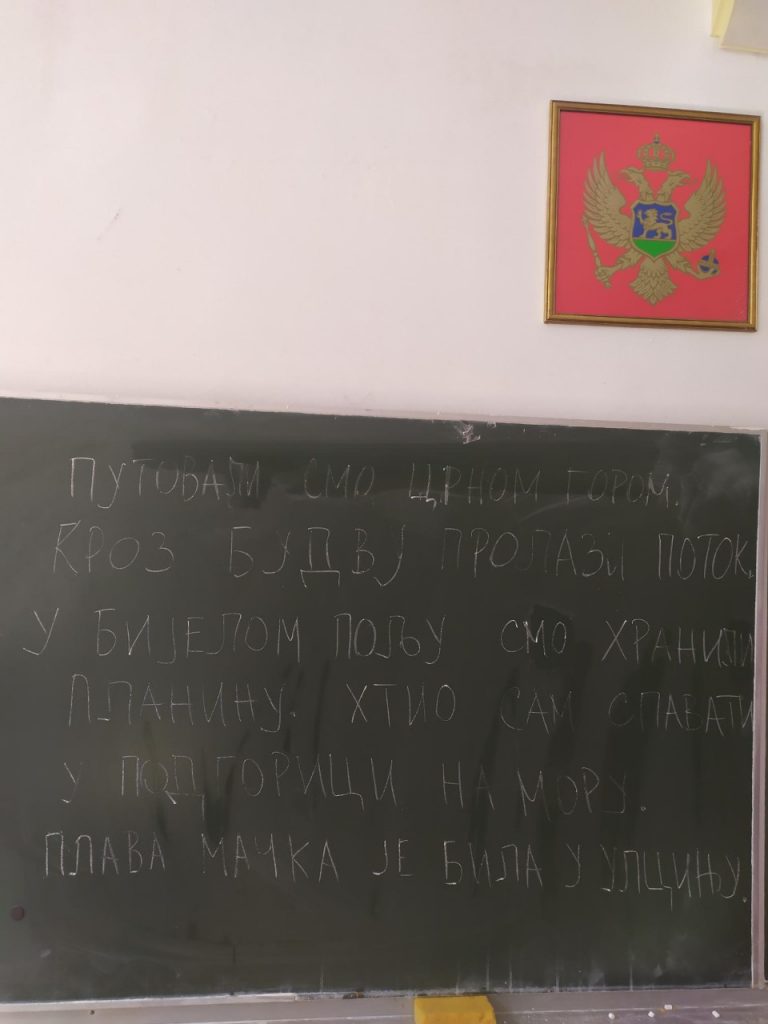 ПУТОВАЛИ СМО ЦРНОМ ГОРОМ.
КРОЗ БУДВУ ПРОЛАЗИ ПОТОК.
У БИЈЕЛОМ ПОЉУ СМО ХРАНИЛИ
ПЛАНИНУ. ХТИО САМ СПАВАТИ
У ПОДГОРИЦИ НА МОРУ.
ПЛАВА МАЧКА ЈЕ БИЛА У УЛЦИЊУ.